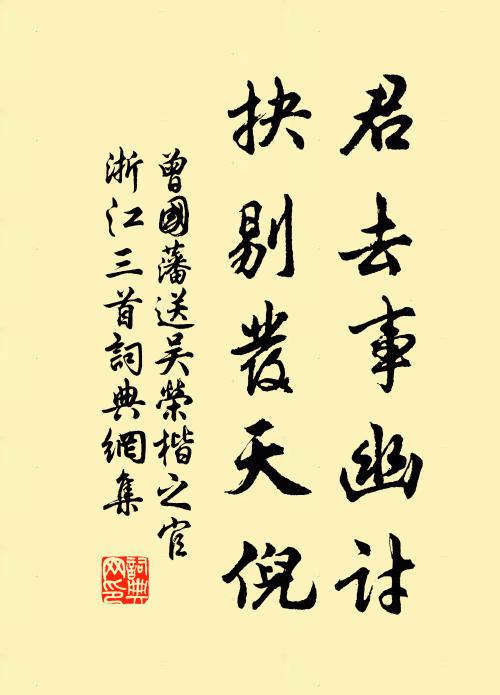 君去事幽討
抉剔發天倪
曾國藩送吳榮楷之官
浙江三首詞典網集
詞典网印